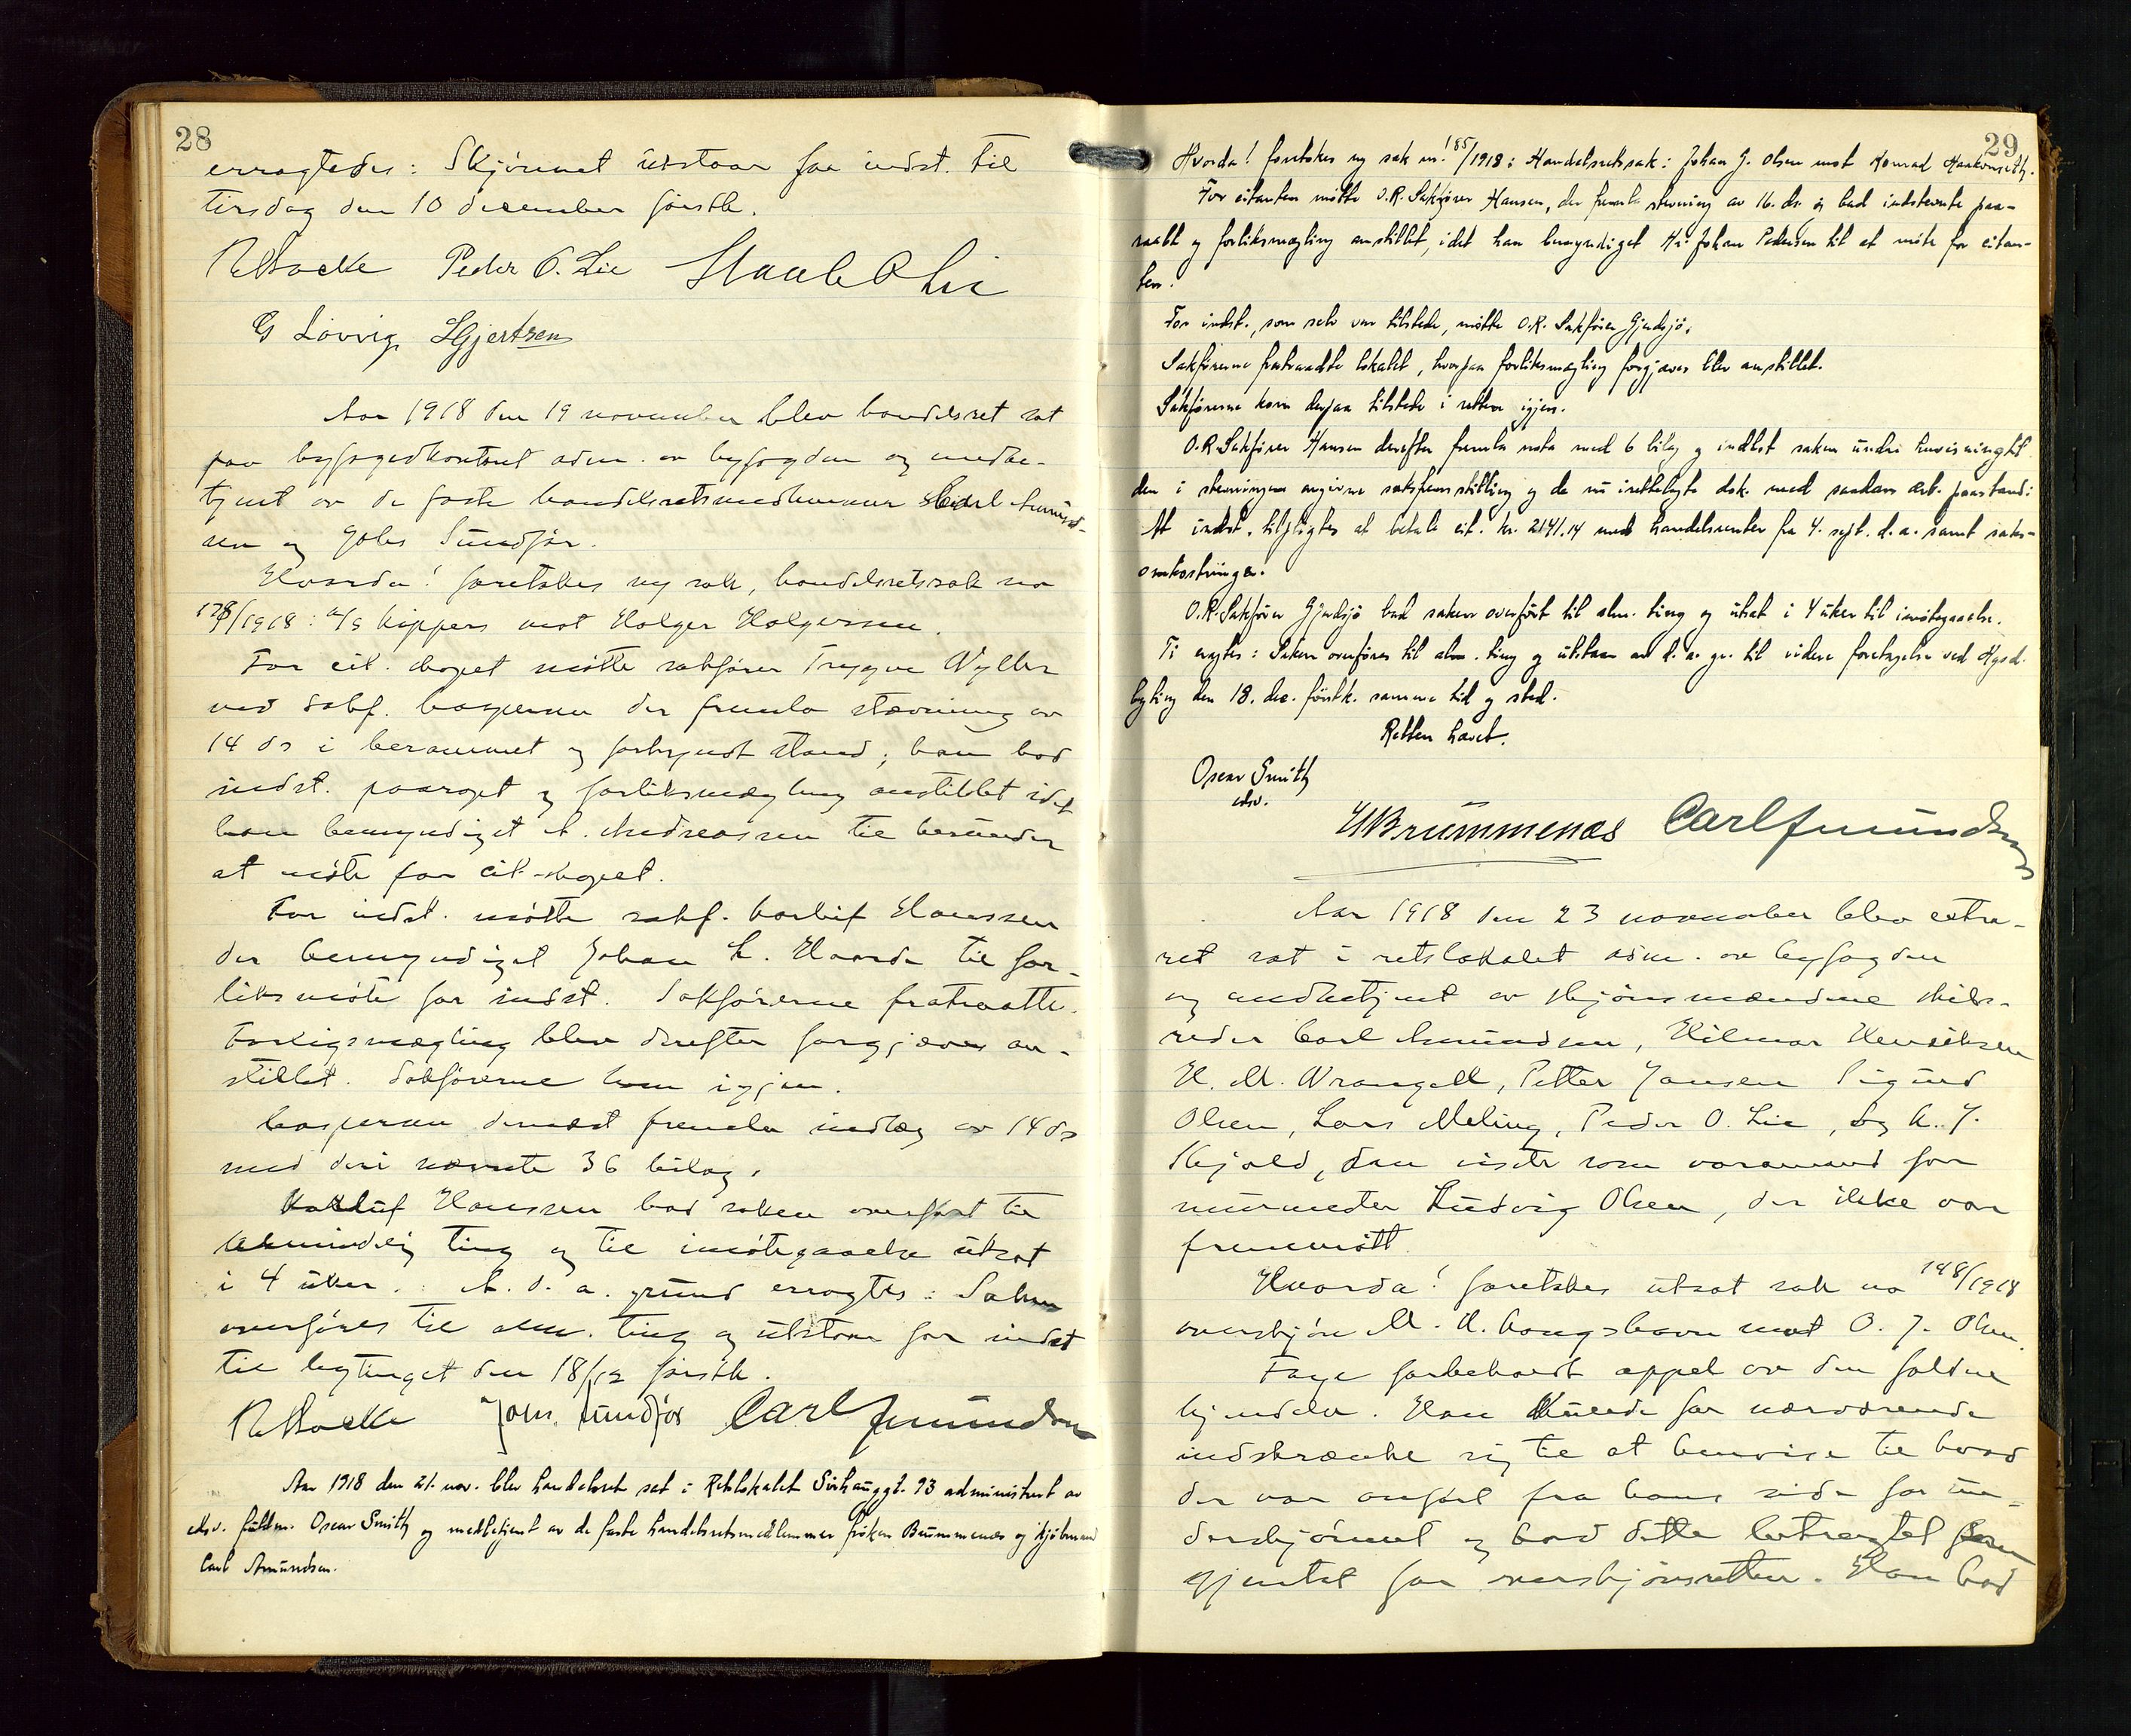 28
erragtedes: Skjønnet utstaar for indst. til
tirsdag den 10 december førstk.
Peder O. Lie
G Løvvig S Gjertsen
Aar 1918 den 19 november blev handelsret sat
paa byfogedkontoret adm. av byfogden og medbe-
tjent av de faste handelsretsmedlemmer Carl Amund-
sen og Johs Sundfør.
Hvorda! foretokes ny sak, handelsretssak no
178/1918: a/s Kippers mot Holger Holgersen.
For cit. skapet møtte sakfører Trygve Wyller
ved sakf. Caspersen der fremla stævning av
14 ds i berammet og forkyndt stand; han bad
indst. paaropt og forliksmægling anstillet idet
han bemyndiget A. Andreassen til herunder
at møte for cit-skapet.
For indst. møtte sakf. Carluf Hanssen
der bemyndiget Johan L. Haarde til for-
liksmøte for indst. Sakførerne fratraatte.
Forligsmægling blev derefter forgjæves an-
stillet. Sakførerne kom igjen.
Caspersen dernæst fremla indlæg av 14 ds
med deri nævnte 36 bilag.
Karluf Hanssen bad saken overført til
almindelig ting og til imøtegaaelse utsat
i 4 uker. A. d. a. grund erragtes: Saken
overføres til alm. ting og utstaar for indst
til bytinget den 18/12 førstk.
Johs. Sundfør Carl Amundsen
Aar 1918 den 21. nov. blev handelsret sat i Retslokalet Sørhauggt. 93 administrert av
edsv. fuldm. Oscar Smith og medbetjent av de faste handelsretsmedlemmer frøken Brummenæs og kjøbmand
Carl Amundsen.
29
Hvorda! foretokes ny sak nr. 185/1918: Handelsretssak: Johan G. Olsen mot Konrad Haakonseth.
For citanten møtte O.R. Sakfører Hansen, der fremla stevning av 16. ds. og bad indstevnte paa-
raabt og forliksmægling anstillet, idet han bemyndiget Hr. Johan Pedersen til at møte for citan-
ten.
For indst., som selv var tilstede, møtte O.R. Sakfører Gjerdsjø.
Sakførerne fratraadte lokalet, hvorpaa forliksmægling forgjæves blev anstillet.
Sakførerne kom derpaa tilstede i retten igjen.
O.R. Sakfører Hansen derefter fremla nota med 6 bilag og indlot saken under henvisning til
den i stevningen angivne saksfremstilling og de nu irettelagte dok. med saadan ært. paastand:
At indst. tilpligtes at betale cit. kr. 2141.14 med handelsrenter fra 4. sept. d.a. samt saks-
omkostninger.
O.R. Sakfører Gjerdsjø bad saken overført til alm. ting og utsat i 4 uker til imøtegaaelse.
Ti eragtes: Saken overføres til alm. ting og utstaar av d. a. gr. til videre foretagelse ved Hgsd.
byting den 18. dec. førstk. samme tid og sted.
Retten hævet.
Oscar Smith
edsv.
Brummenæs Carl Amundsen
Aar 1918 den 23 november blev extra-
ret sat i retslokalet adm. av byfogden
og medbetjent av skjønsmændene skibs-
reder Carl Amundsen, Hilmar Henriksen
H. M. Wrangell, Petter Jansen Sigurd
Olsen, Lars Meling, Peder O. Lie, og A. J.
Skjold, den sidste som varamand for
murmester Ludvig Olsen, der ikke var
fremmøtt.
Hvorda! foretokes utsat sak no 148/1918
overskjøn M. A. Kongshavn mot O. J. Olsen.
Fage forbeholdt appel av den faldne
kjendelse. Han kunde for nærværende
indskrænke sig til at henvise til hvad
der var anført fra hans side for un-
derskjønnet og bad dette betragtet som
gjentat for overskjønsretten. Han bad